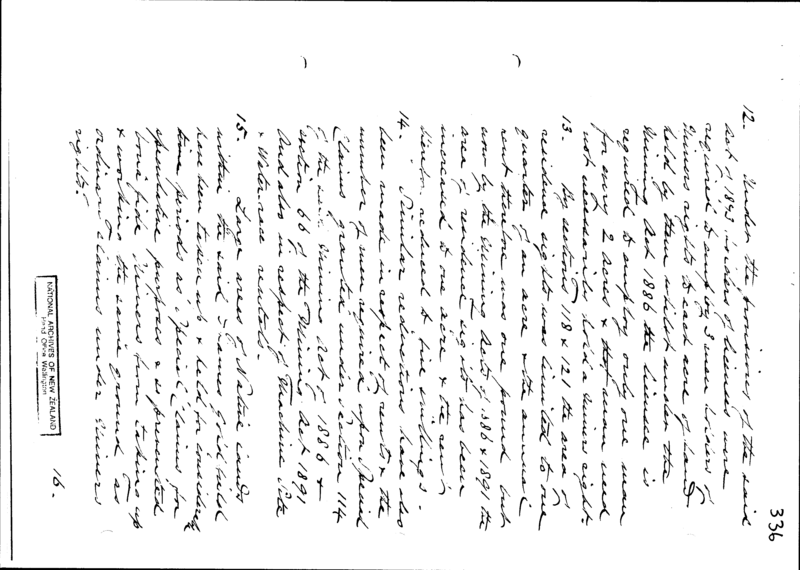 336
12. Under the provisions of the said
Act of 1873 holders of licenses were
required to employ 3 men holders of
Miners rights to each acre of land
held by them whilst under the
Mining Act 1886 the licensee is
required to employ only one man
for every 2 acres & that man need
not necessarily hold a Miners right.
13. By sections 118 & 121 the area of
residence right was limited to one
quarter of an acre & the annual
rent therefor was one pound but
now by the Mining Acts of 1886 & 1891 the
area of residence right has been
increased to one acre & the rent
therefor reduced to five shillings.
14. Similar reductions have also
been made in respect of rents & the
number of men required upon Special
Claims granted under Section 114
of the said Mining Act of 1886 &
section 66 of the Mining Act 1891
And also in respect of Machine Site
& Water race rentals.
15. Large areas of Native lands
within the said Goldfield
have been taken up & held for considerable
time periods as Special Claims for
speculative purposes & so prevented
bona fide Miners from taking up
& working the same ground as
ordinary claims under Miners
rights.
16.
NATIONAL ARCHIVES OF NEW ZEALAND
Head Office Wellington